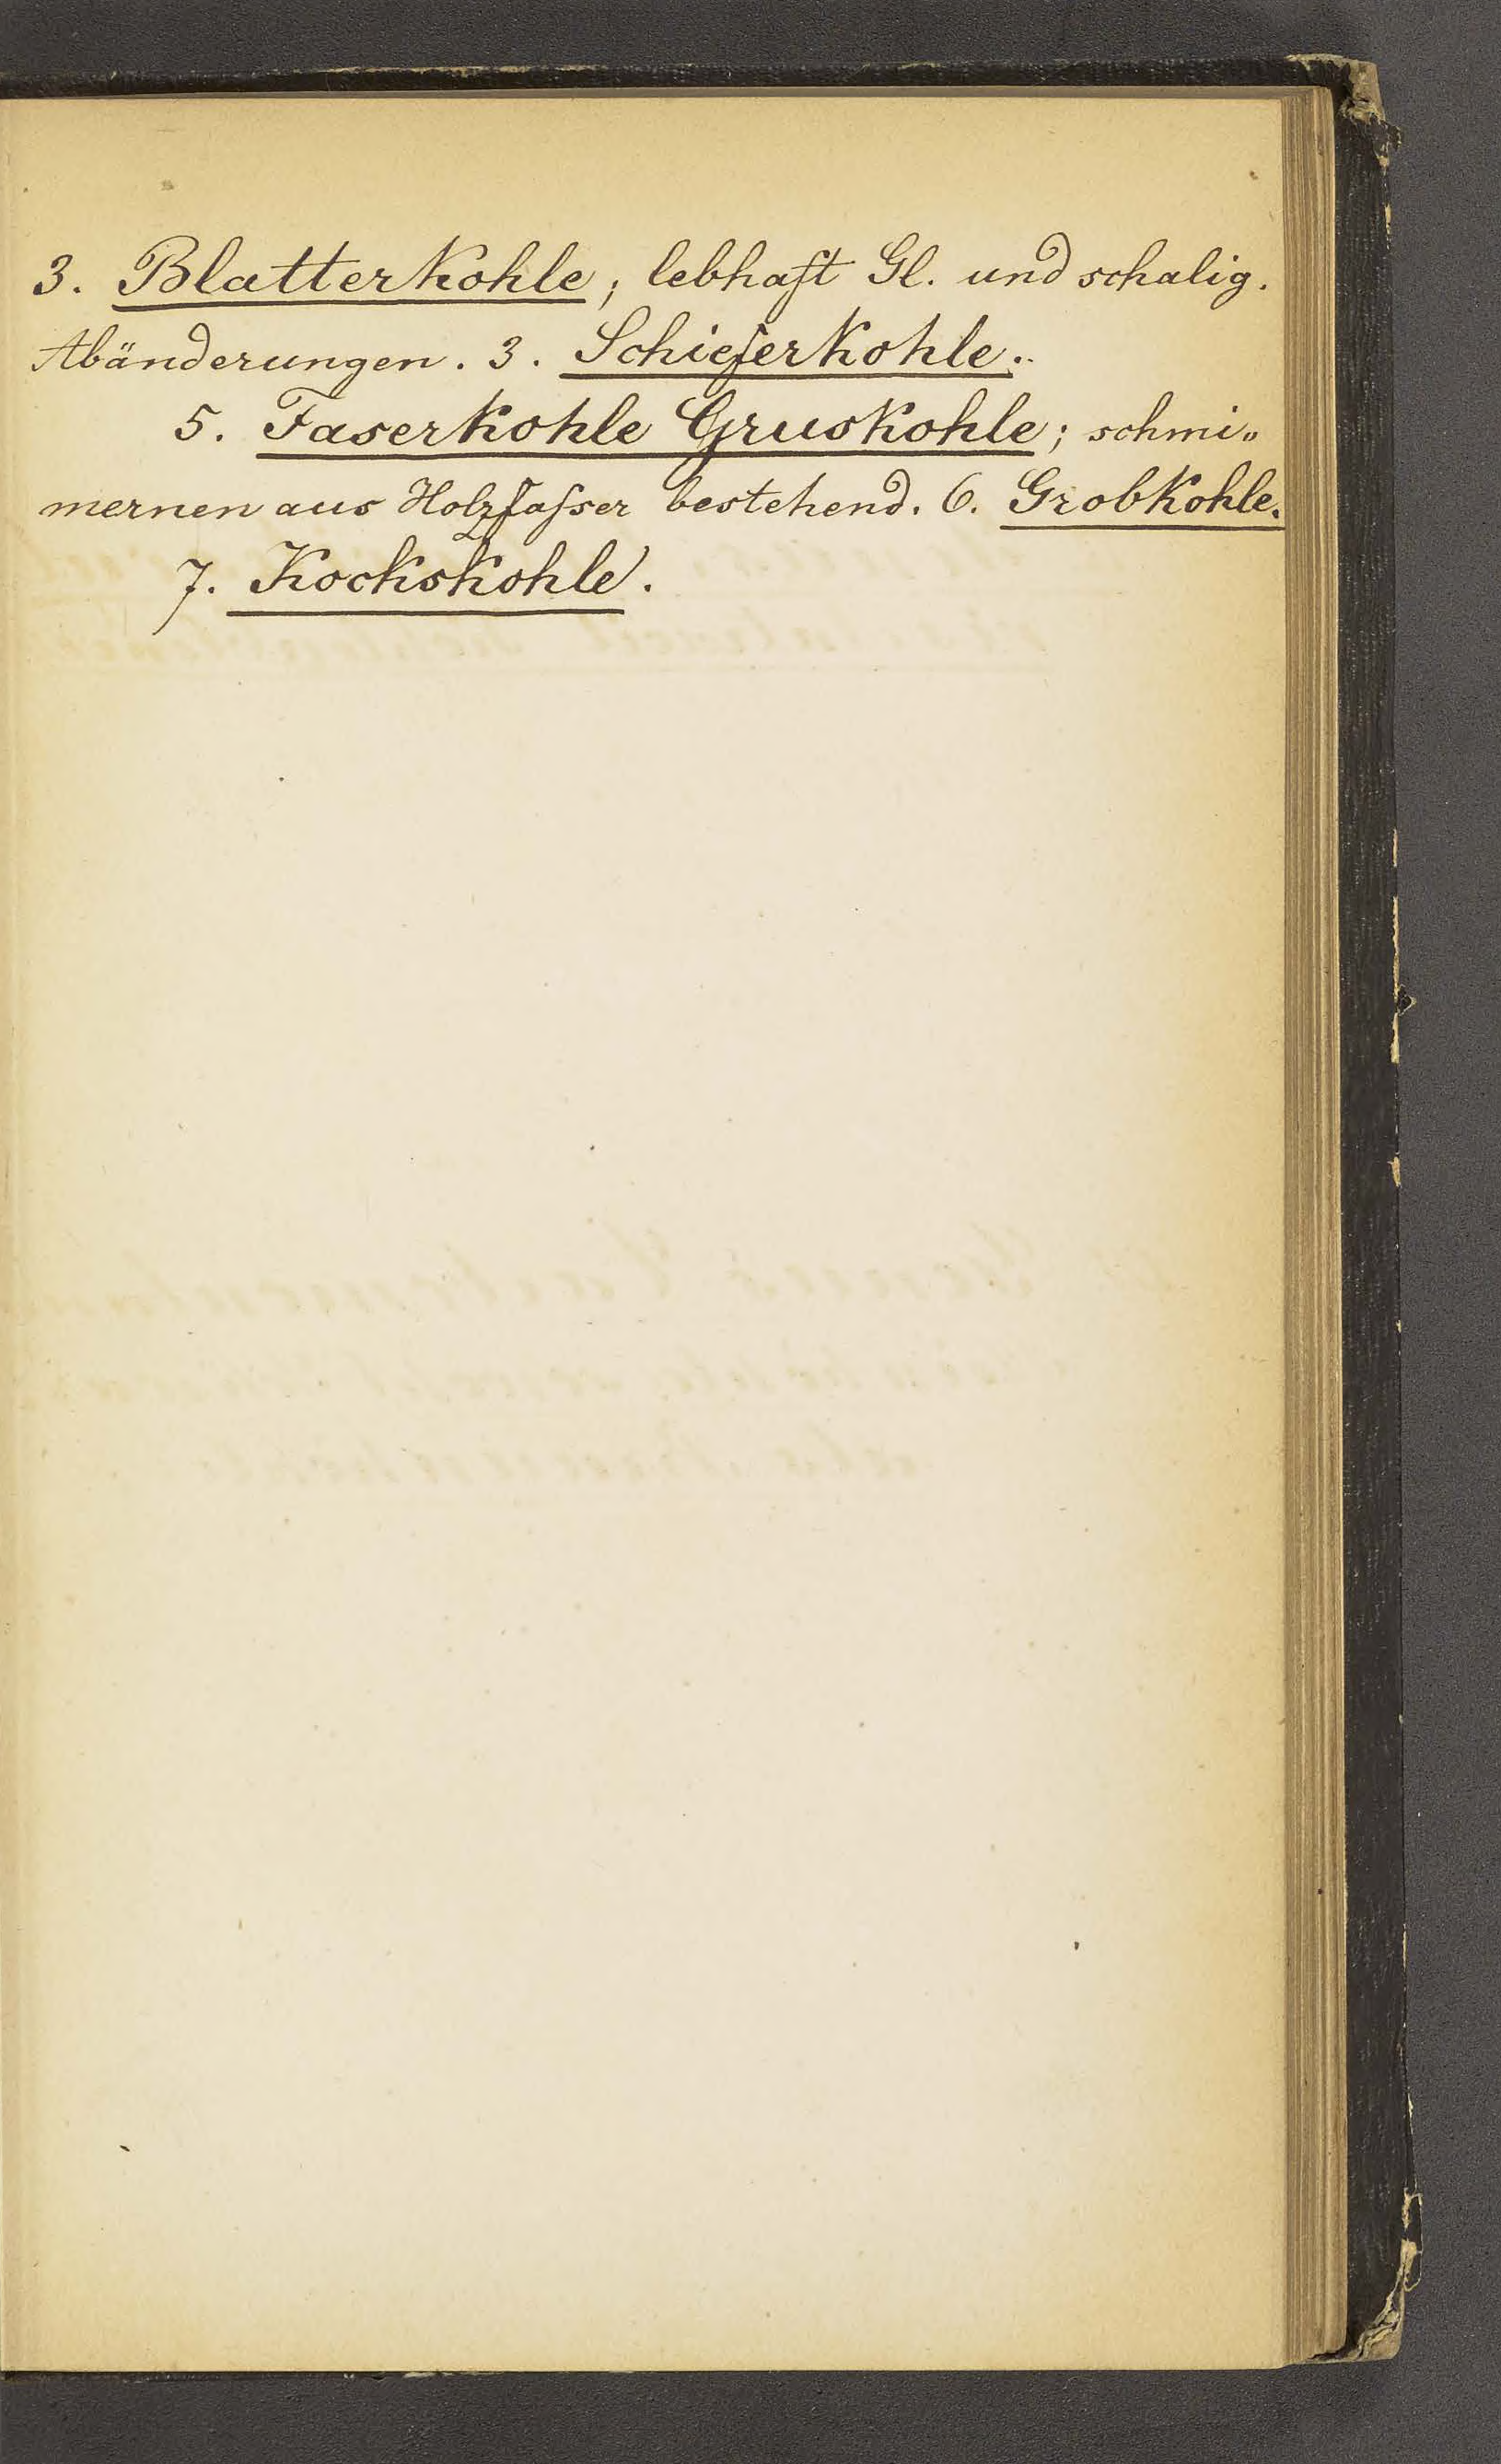 3. Blatterkohle; lebhaft Gl. und schalig.
Abänderungen. 3. Schieferkohle.
5. Faserkohle Gruskohle; schmi„
mernen aus Holzfaſser bestehend. 6. Grobkohle.
7. Kockskohle.